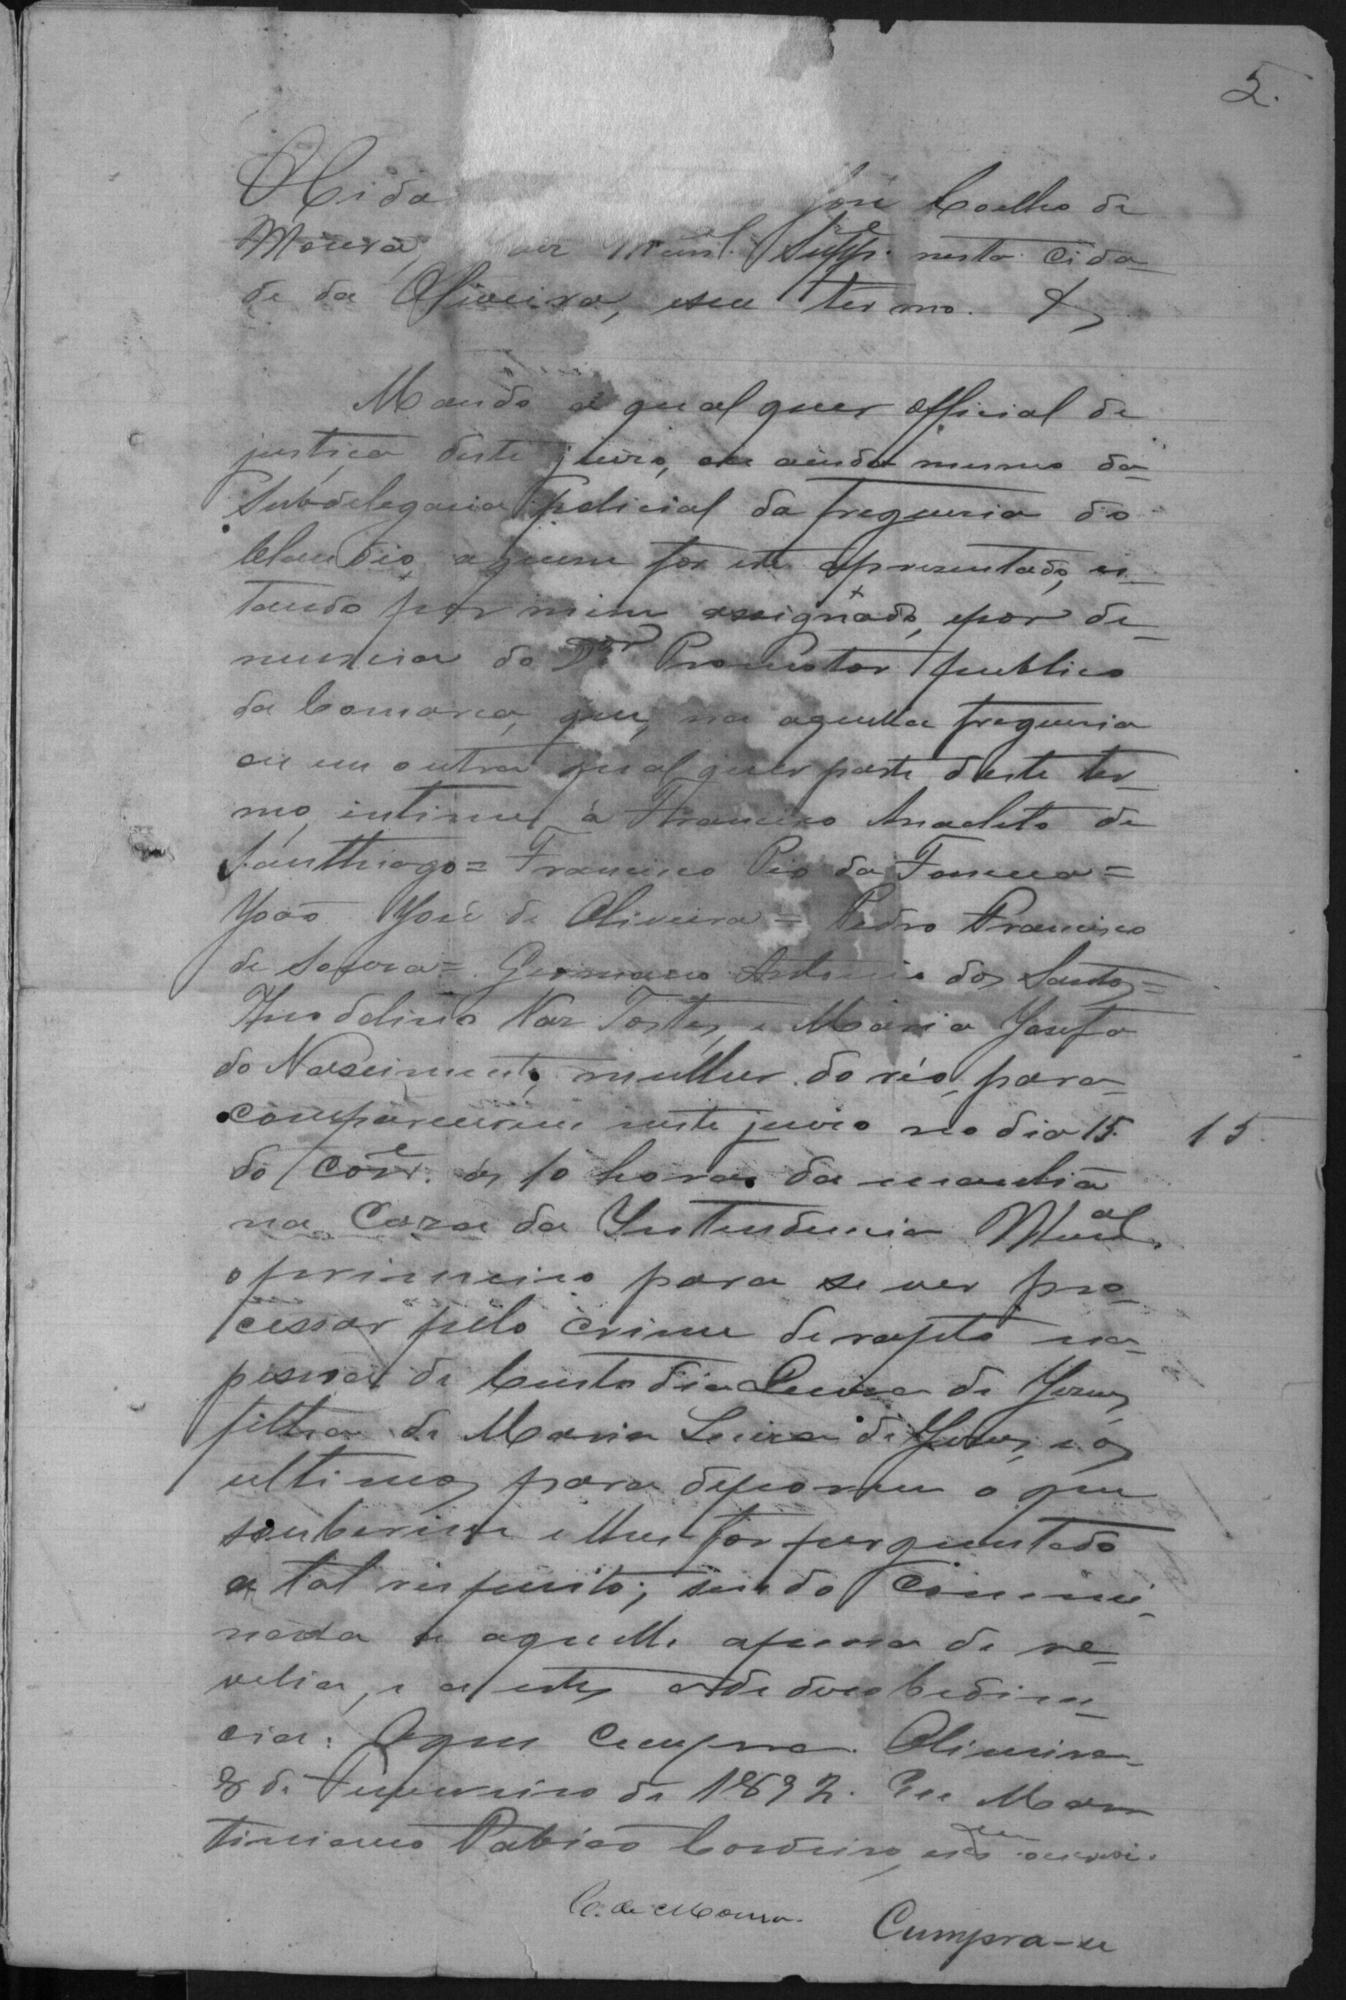 5.
O Cida José Coelho de
Moura, Juiz Munl. Suppe. nesta cida-
de da Oliveira, e seu termo. &
Mando a qual quer official de
justiça deste juizo, ou ainda mesmo da
Subdelegacia policial da freguesia do
Claudio, a quem for este apresentado, es-
tando por mim assignado, e por de-
nuncia do Dor Promotor publico
da Comarca, que, na aquella freguesia
ou em outra qual quer parte deste ter-
mo, intime á Francisco Anacleto de
Santhiago = Francisco Pio da Fonseca =
João José de Oliveira = Pedro Francisco
de Souza = Germano Antonio dos Santos =
Theodolino Vaz Tostes, e Maria Josefa
do Nascimento, mulher do réo, para
comparecerem neste juizo no dia 15. 15.
do corre. ás 10 horas da manhã
na Caza da Intendencia Munal.
o primeiro para se ver pro-
cessar pelo crime de rapto na
pessoa de Custodia Luiza de Jesus,
filha de Maria Luiza de Jesus, e os
ultimos para deporem o que
souberem e lhes for perguntado
a tal respeito; sendo commi-
nada a aquelle a pena de re-
velia, e a estes a de desobedien-
cia. O que cumpra. Oliveira
8 de Fevereiro de 1892. Eu Mar
timiano Cordeiro,
C. de Moura. Cumpra-se